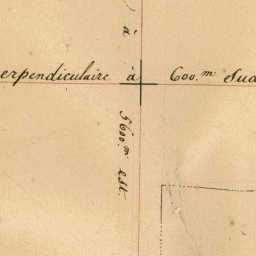 erpendiculaire à 600.m Sud
à
5600.m est.